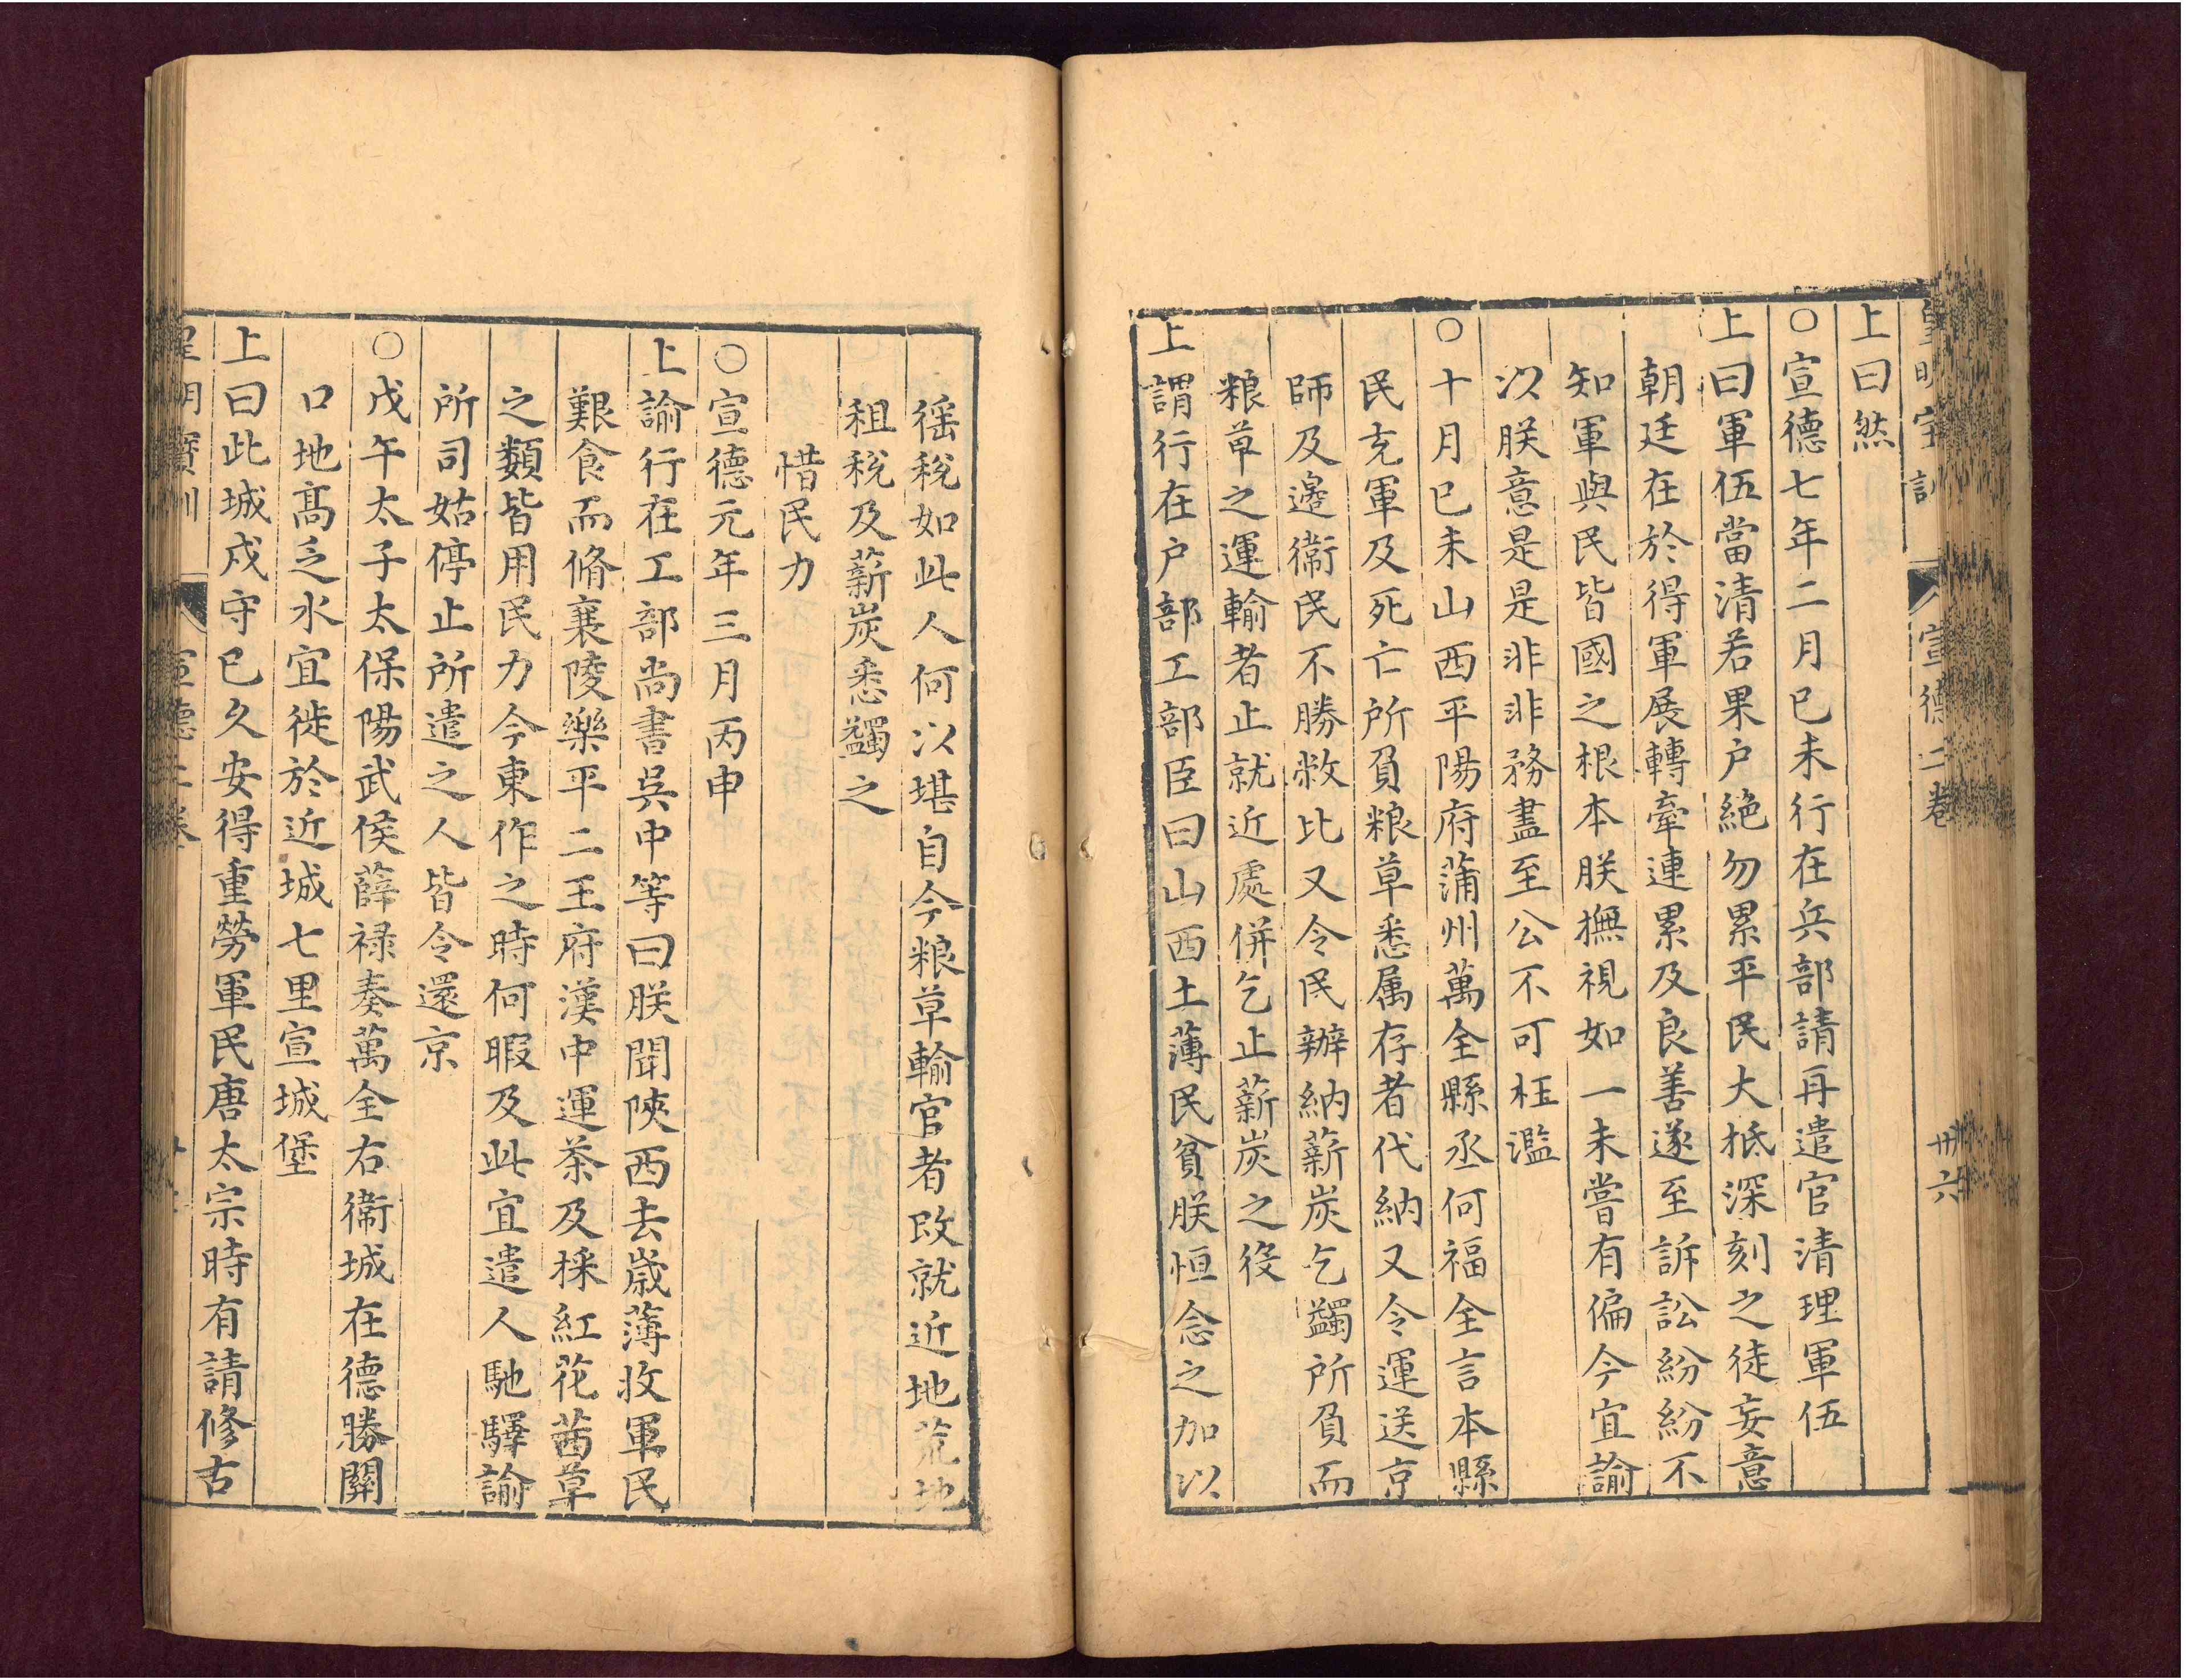 皇明寶訓 宣德二卷 卅六
上曰然
○宣德七年二月巳未行在兵部請再遣官清理軍伍
上曰軍伍當清若果户絕勿累平民大抵深刻之徒妄意
朝廷在於得軍展轉牽連累及良善遂至訴訟紛紛不
知軍與民皆國之根本朕撫視如一未嘗有偏今宜諭
以朕意是是非非務盡至公不可枉濫
○十月巳未山西平陽府蒲州萬全縣丞何福全言本縣
民充軍及死亡所負粮草悉属存者代納又令運送京
師及邊衞民不勝敝比又令民辦納薪炭乞蠲所負而
粮草之運輸者止就近處併乞止薪炭之役
上謂行在户部工部臣曰山西土薄民貧朕恒念之加以
徭稅如此人何以堪自今粮草輸官者改就近地荒地
租稅及薪炭悉蠲之
惜民力
○宣德元年三月丙申
上諭行在工部尚書吳中等曰朕聞陝西去歲薄收軍民
艱食而脩襄陵樂平二王府漢中運茶及採紅花茜草
之類皆用民力今東作之時何暇及此宜遣人馳驛諭
所司姑停止所遣之人皆令還京
○戊午太子太保陽武侯薛禄奏萬全右衞城在德勝關
口地髙乏水宜徙於近城七里宣城堡
上曰此城戍守已久安得重勞軍民唐太宗時有請修古
皇明寶訓 宣德二卷